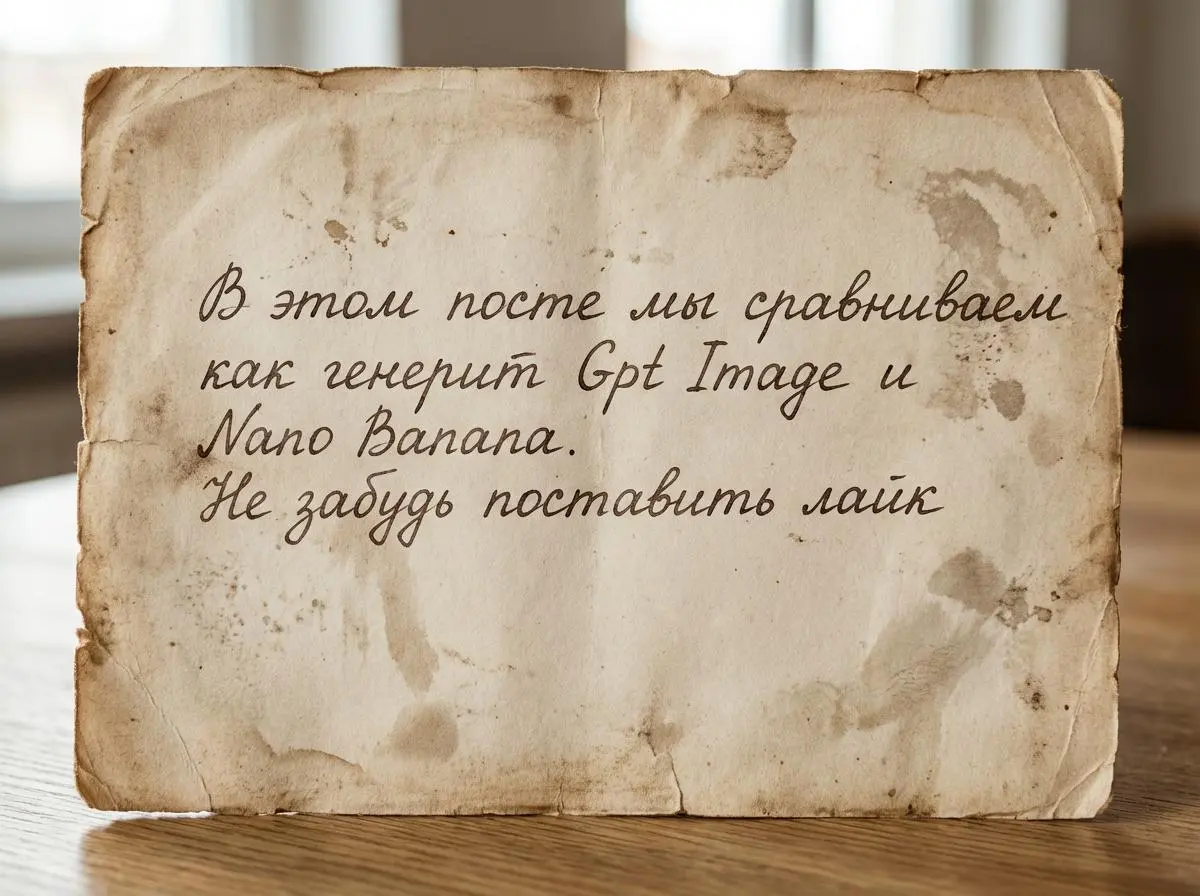 В этом посте мы сравниваем
как генерит Gpt Image и
Nano Banana.
Не забудь поставить лайк